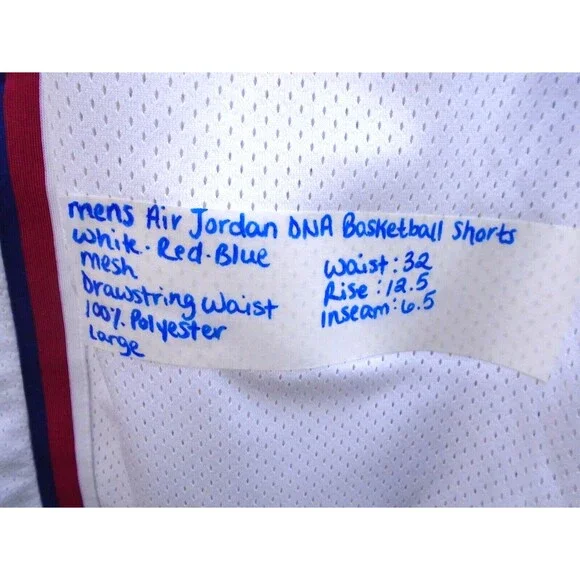 mens Air Jordan DNA Basketball Shorts
White - Red - Blue
mesh
Drawstring Waist
100% Polyester
Large
Waist: 32
Rise: 12.5
Inseam: 6.5